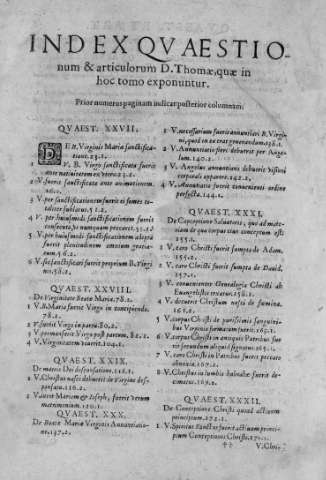 INDEX QVAESTIO-
num & articulorum D. Thomæ, quæ in
hoc tomo exponuntur.
Prior numerus paginam indicat posterior columnam.
QVAEST. XXVII.
DE B. Virginis Mariæ sanctifica-
tione. 23.1.
V. B. Virgo sanctificata fuerit
ante natiuitatem ex vtero. 23.2.
2 V. fuerit sanctificata ante animationem.
3 V. per sanctificationem fuerit ei fomes to-
taliter sublatus. 51.2.
4 V. per huiusmodi sanctificationem fuerit
consecuta, vt nunquam peccaret. 51.
5 V. per huiusmodi sanctificationem adepta
fuerit plenitudinem omnium gratia-
6 V. sic sanctificari fuerit proprium B. Virgi
QVAEST. XXVIII.
De Virginitate Beatæ Mariæ. 78.2.
1 V. B. Maria fuerit Virgo in concipiendo.
78.2.
2 V. fuerit Virgo in partu. 80.2.
3 V. permanserit Virgo post partum. 82.2.
4 V. Virginitatem vouerit. 104.1.
QVAEST. XXIX.
De matris Dei desponsatione.
1 V. Christus nasci debuerit de Virgine despo-
2 V. inter Mariam & Ioseph, fuerit verum
matrimonium. 120.1.
QVAEST. XXX.
De Beatæ Mariæ Virginis Annuntiatio-
ne. 137.2.
1 V. necessarium fuerit annuntiari B. Virgi-
ni, quod in ea erat generandum. 138.1.
2 V. Annuntiatio fieri debuerit per Ange-
lum. 140.1.
3 V. Angelus annuntians debuerit visione
corporali apparere. 142.1.
4 V. Annuntiatio fuerit conuenienti ordine
perfecta. 144.1.
QVAEST. XXXI.
De Conceptione Saluatoris, quo ad materi-
am de qua corpus eius conceptum est.
155.1.
1 V. caro Christi fuerit sumpta de Adam.
155.1.
2 V. caro Christi fuerit sumpta de Dauid.
157.1.
3 V. conuenienter Genealogia Christi ab
Euangelistis texatur. 158.1.
4 V. debuerit Christum nasci de fœmina.
5 V. corpus Christi de purissimis sanguini-
bus Virginis formatum fuerit. 165.1.
6 V. corpus Christi in antiquis Patribus fue
rit secundum aliquid signatum. 165.1.
7 V. caro Christi in Patribus fuerit peccato
8 V. Christus in lumbis Habrahæ fuerit de-
QVAEST. XXXII.
De Conceptione Christi quoad actiuum
principium. 172.1.
1 V. Spiritus Sanctus fuerit actiuum princi-
pium Conceptionis Christi.
†† V. Chri-